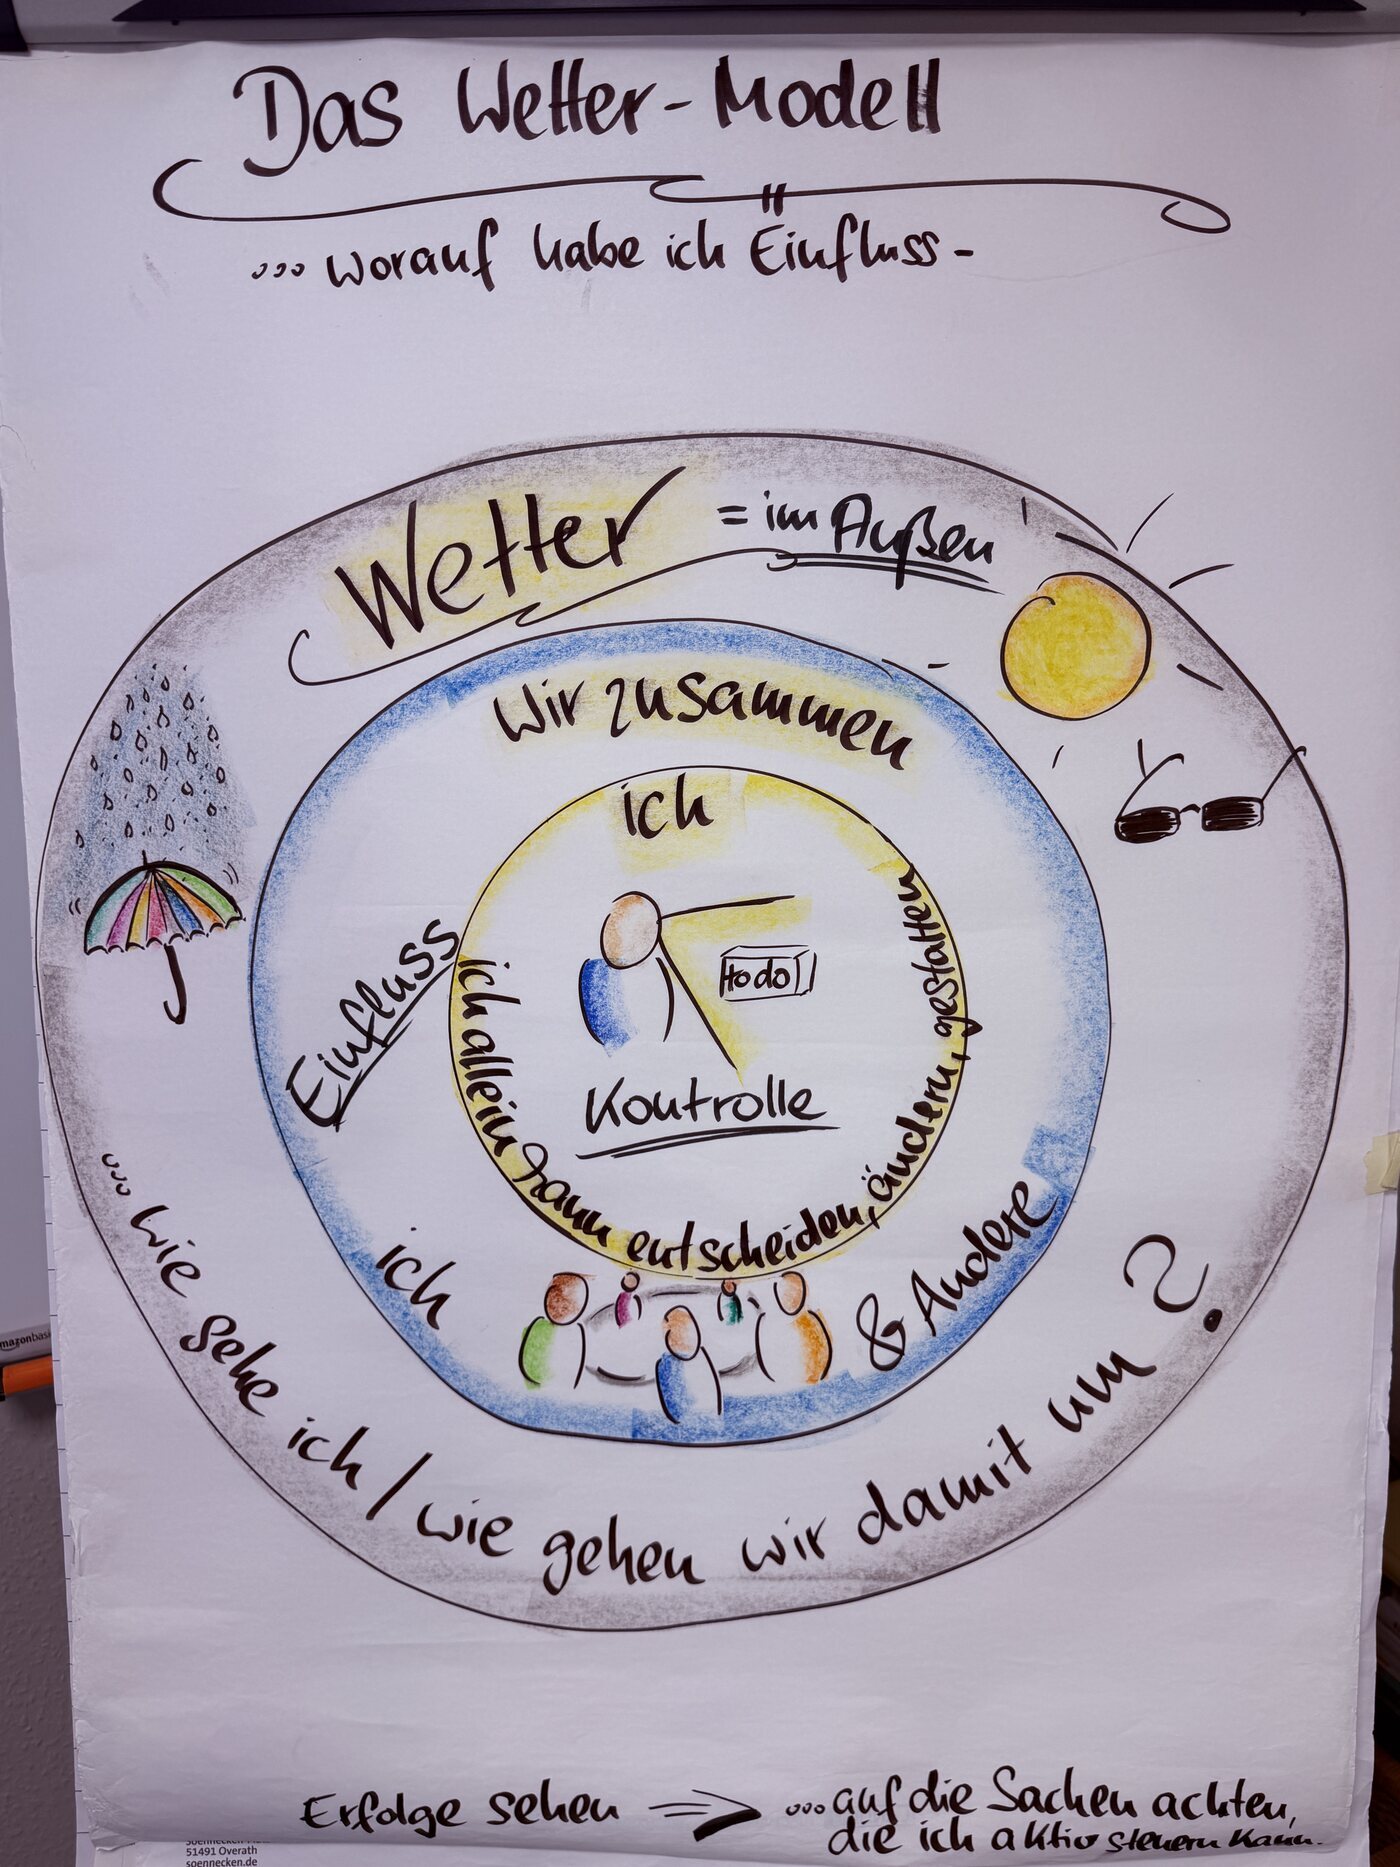 Das Wetter-Modell
... worauf habe ich Einfluss -
Wetter = im Außen
Wir zusammen
ich
todo
Einfluss
Kontrolle
ich allein kann entscheiden, ändern, gestalten
ich & Andere
... wie sehe ich / wie gehen wir damit um?
Erfolge sehen => ... auf die Sachen achten,
die ich aktiv steuern kann.
amazonbasi
51491 Overath
soennecken.de